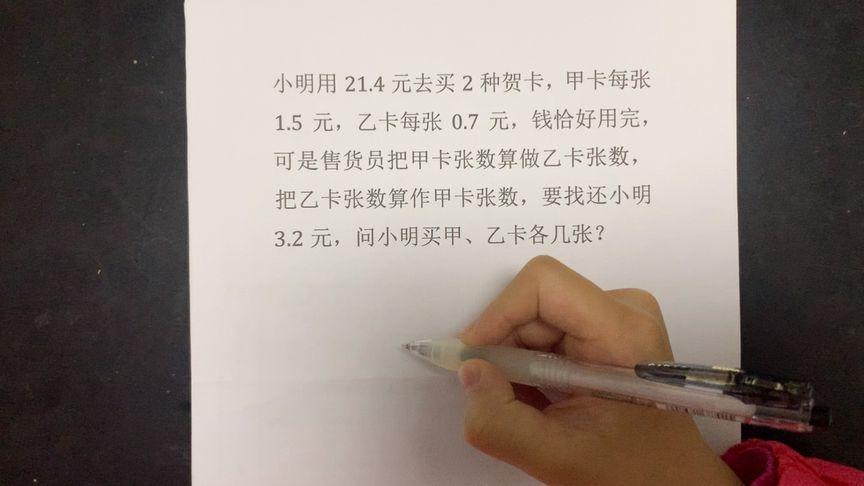 小明用 21.4 元去买 2 种贺卡，甲卡每张
1.5 元，乙卡每张 0.7 元，钱恰好用完，
可是售货员把甲卡张数算做乙卡张数，
把乙卡张数算作甲卡张数，要找还小明
3.2 元，问小明买甲、乙卡各几张？